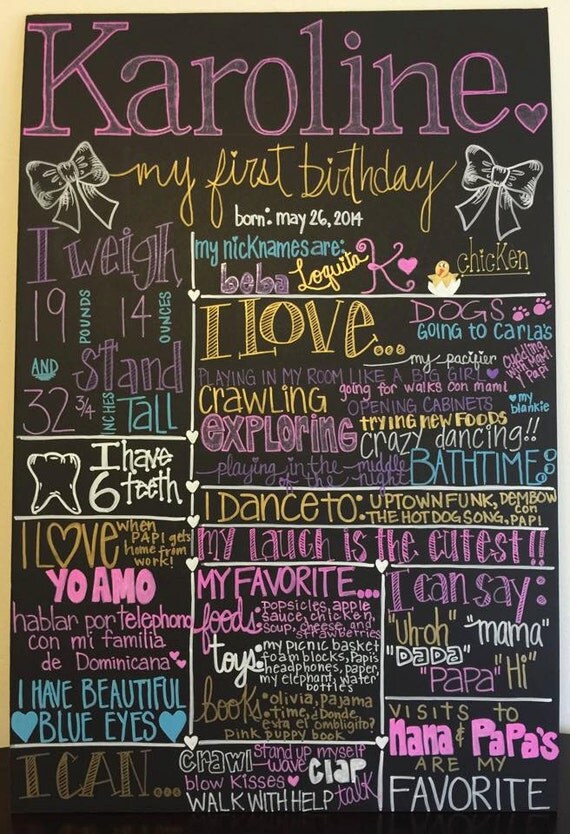 Karoline.
my first birthday
born: may 26, 2014
I weigh
19 POUNDS 14 OUNCES
AND Stand
32 3/4 INCHES TALL
my nicknames are:
beba Loquita K chicken
I LOVE...
DOGS
GOING TO CARLA'S
my pacifier
cuddling with mami y papi
PLAYING IN MY ROOM LIKE A BIG GIRL
CRAWLING
going for walks con mami
OPENING CABINETS
my blankie
EXPLORING
TRYING NEW FOODS
crazy dancing!!
playing in the middle of the night
BATHTIME
I have
6 teeth
I DANCE TO: UPTOWN FUNK, DEMBOW con
THE HOT DOG SONG, PAPI
I LOVE when PAPI gets home from work!
MY LAUGH IS THE CUTEST!!
YO AMO
hablar por telephono
con mi familia
de Dominicana
MY FAVORITE...
foods: popsicles, apple
sauce, chicken
soup, cheese, and
strawberries
toys: my picnic basket
foam blocks, Papi's
headphones, paper,
my elephant, water
bottles
books: olivia, pajama
time, ¿Donde
esta el ombligito?
pink puppy book
I can say:
"uh-oh" "mama"
"DADA" "Hi"
"PAPA"
I HAVE BEAUTIFUL
BLUE EYES
VISITS TO
Nana & Papa's
ARE MY
FAVORITE
I CAN...
crawl stand up myself
wave clap
blow kisses talk
WALK WITH HELP